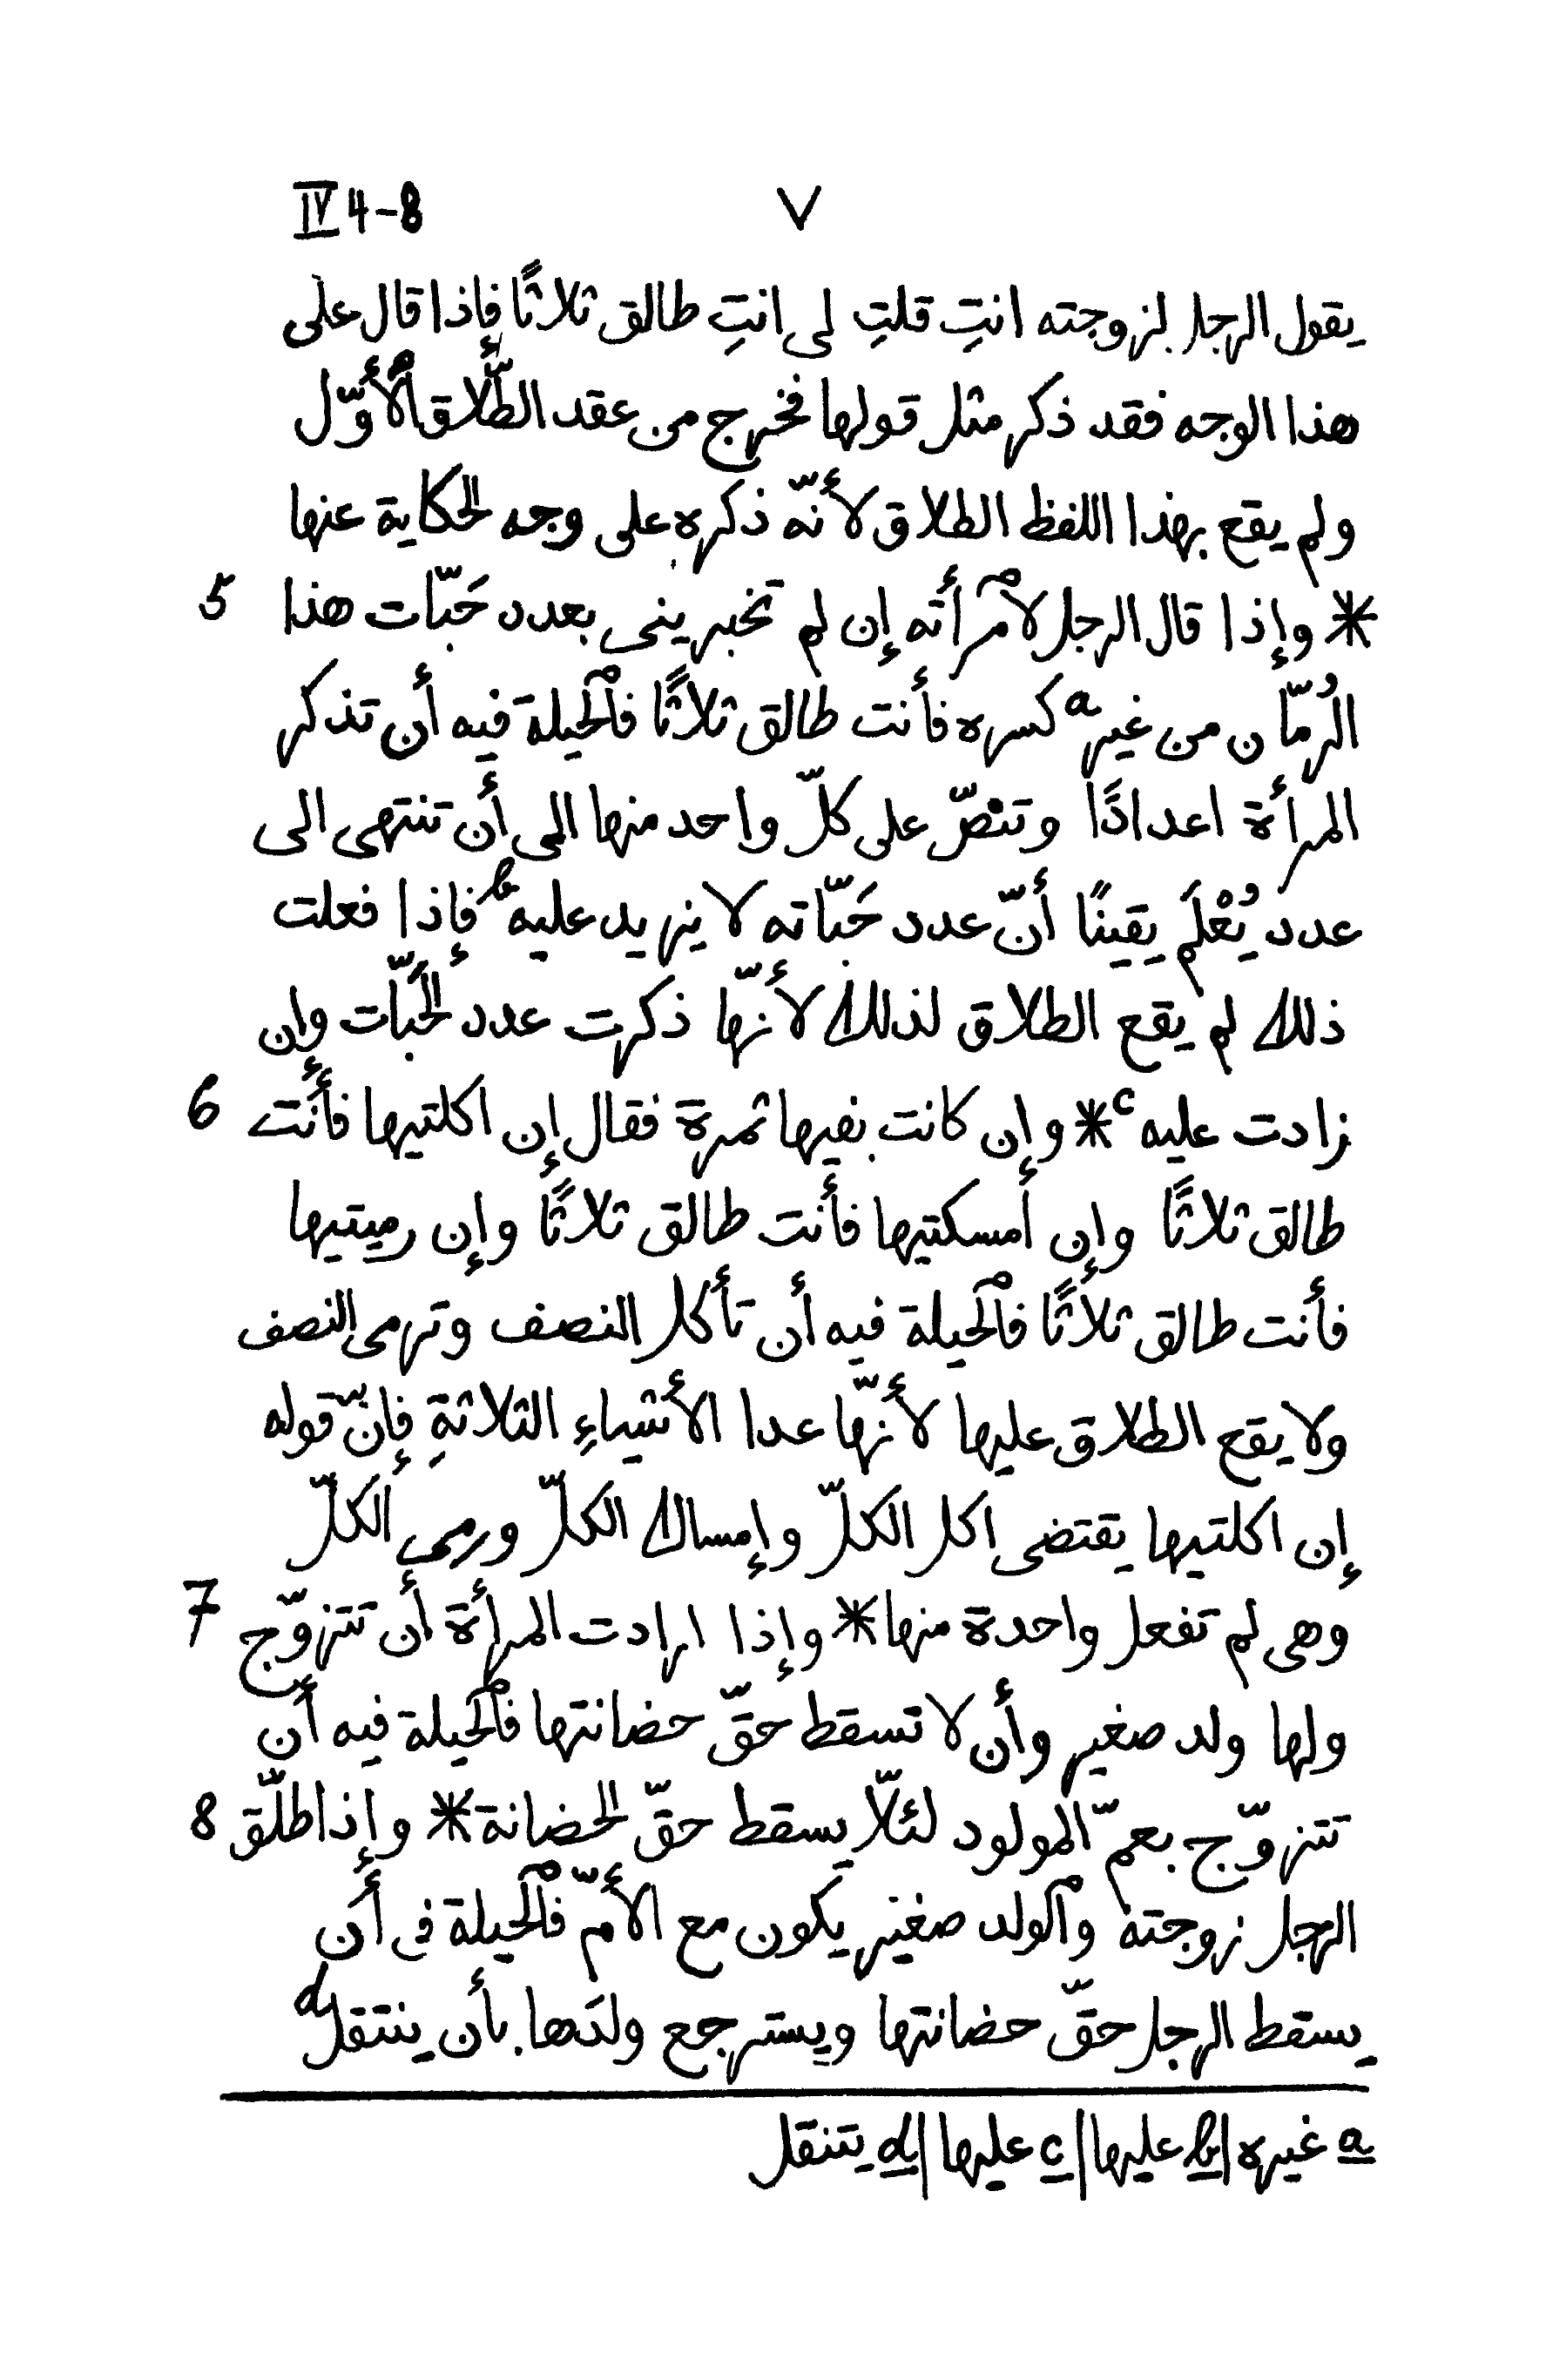 IV 4-8 ٧
يقول الرجل لزوجته انتِ قلتِ لى انتِ طالق ثلاثًا فإذا قال على
هذا الوجه فقد ذكر مثل قولها فخرج من عقد الطّلاق ٱلأوّل
ولم يقع بهذا اللفظ الطلاق لأنّه ذكره على وجه الحكاية عنها
* وإذا قال الرجل لٱمرأته إن لم تخبرينى بعدد حَبّات هذا 5
الرُمّان من غير a كسره فأنت طالق ثلاثًا فٱلحيلة فيه أن تذكر
المرأة اعدادًا وتنْصّ على كلّ واحد منها الى أن تنتهى الى
عدد يُعْلَم يقينًا أنّ عدد حَبّاته لا يزيد عليه b فإذا فعلت
ذلك لم يقع الطلاق لذلك لأنّها ذكرت عدد الحَبّات وإن
زادت عليه c * وإن كانت بفيها ثمرة فقال إن اكلتيها فأنت 6
طالق ثلاثًا وإن أمسكتيها فأنت طالق ثلاثًا وإن رميتيها
فأنت طالق ثلاثًا فٱلحيلة فيه أن تأكل النصف وترمى النصف
ولا يقع الطلاق عليها لأنّها عدا الأشياءِ الثلاثةِ فإنّ قوله
إن اكلتيها يقتضى اكل الكلّ وإمساك الكلّ ورمى الكلّ
وهى لم تفعل واحدة منها * وإذا ارادت المرأة أن تتزوّج 7
ولها ولد صغير وأن لا تسقط حقّ حضانتها فٱلحيلة فيه أن
تتزوّج بعمّ المولود لئلّا يسقط حقّ الحضانة * وإذا طلّق 8
الرجل زوجته وٱلولد صغير يكون مع الأمّ فٱلحيلة فى أن
يسقط الرجل حقّ حضانتها ويسترجع ولدَها بأن ينتقل d
a غيره | b عليها | c عليها | d يتنقل